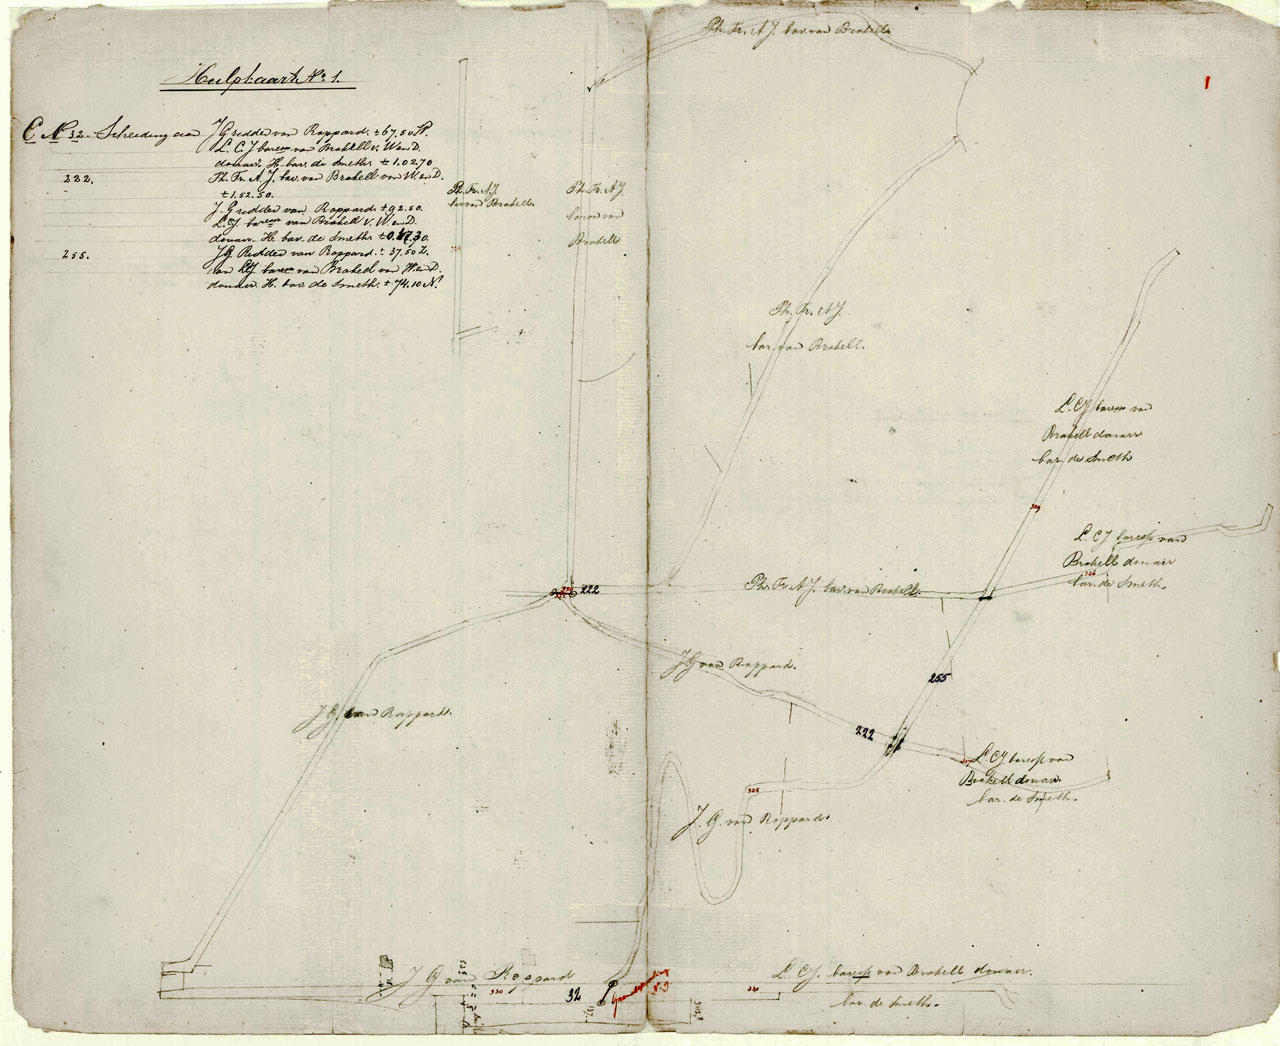 Hulpkaart No 1.
1
C No 32. Scheiding aan J G ridder van Rappard ± 67.50 W.
L. C. J baresse van Brakell v. W en D.
douair. H. bar. de Smeth. ± 1.02.70
222. Ph. Fr. A. J. bar. van Brakell van W. en D.
± 1.52.50.
J. G ridder van Rappard ± 92.50.
L C J baresse van Brakell v. W en D.
douair. H. bar. de Smeth ± 0.47.30.
255. J G. Ridder van Rappard ± 37.50 Z.
van L C J. baresse van Brakell van W en D.
douair. H. bar de Smeth. ± 74.10 N.
Ph. Fr. A J. bar. van Brakell
Ph. Fr. A J.
bar van Brakell.
Ph. Fr. A J
baron van
Brakell
Ph. Fr. A J.
bar. van Brakell.
L. C J baresse van
Brakell douair
bar. de Smeth
329
L. C J. baresse van
Brakell douair
326
bar. de Smeth.
222
Ph. Fr A J. bar. van Brakell.
J G van Rappard.
255
J G van Rappard.
222
L. C J baresse van
Brakell douair.
bar. de Smeth.
328
J. G. van Rappard.
J G van Rappard
330
32
Grondslag
L. C J. baresse van Brakell douair.
bar. de Smeth.